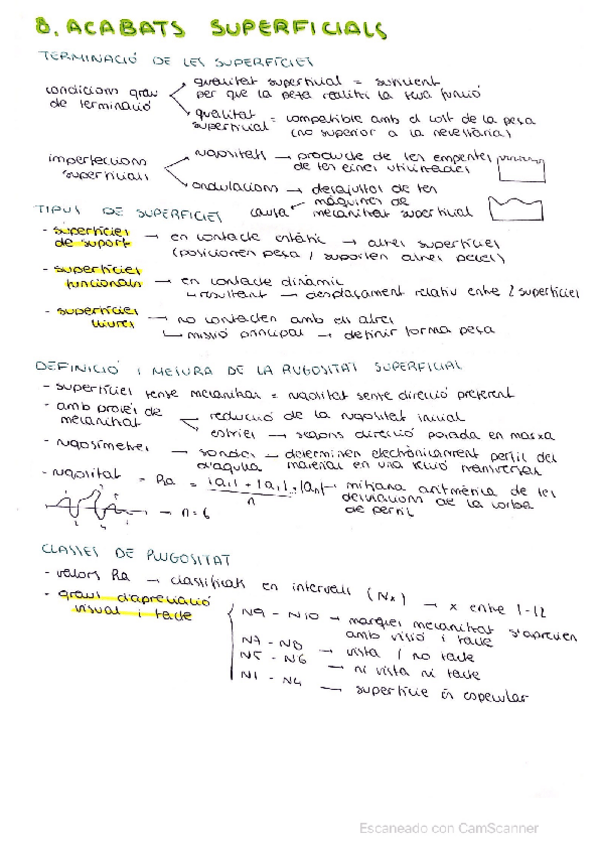 8. ACABATS SUPERFICIALS
TERMINACIÓ DE LES SUPERFÍCIES
condicions grau de terminació
qualitat superficial = suficient per que la peça realitzi la seva funció
qualitat superficial = compatible amb el cost de la peça (no superior a la necessària)
imperfeccions superficials
rugositats → producte de les empentes de les eines utilitzades
ondulacions → desajustos de les màquines de mecanitzat superficial
causa
TIPUS DE SUPERFÍCIES
- superfícies de suport → en contacte estàtic → altres superfícies
(posicionen peça / suporten altres peces)
- superfícies funcionals → en contacte dinàmic
resultant → desplaçament relatiu entre 2 superfícies
- superfícies lliures → no contacten amb els altres
missió principal → definir forma peça
DEFINICIÓ I MESURA DE LA RUGOSITAT SUPERFICIAL
- superfícies sense mecanitzar = rugositat sense direcció preferent
- amb procés de mecanitzat
reducció de la rugositat inicial
estries → segons direcció
- rugosímetres → sondes d'agulla → determinen electrònicament perfil del material en una secció transversal
- rugositat = Ra = |a₁| + |a₁| .. |an| / n → mitjana aritmètica de les desviacions de la corba de perfil
→ n = 6
CLASSES DE RUGOSITAT
- valors Ra → classificats en intervals (Nx) → x entre 1-12
- graus d'apreciació visual i tacte
N9 - N10 → marques mecanitzat s'aprecien amb visió i tacte
N7 - N8 → vista / no tacte
N5 - N6 → ni vista ni tacte
N1 - N4 → superfície és especular
Escaneado con CamScanner